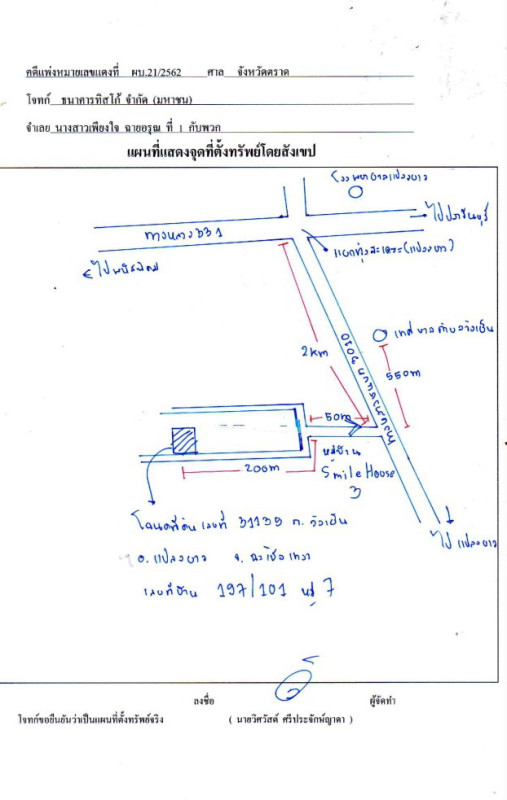 คดีแพ่งหมายเลขแดงที่ ผบ.21/2562 ศาล จังหวัดตราด
โจทก์ ธนาคารทิสโก้ จำกัด (มหาชน)
จำเลย นางสาวเพียงใจ ฉายอรุณ ที่ 1 กับพวก
แผนที่แสดงจุดที่ตั้งทรัพย์โดยสังเขป
โรงพยาบาลแปลงยาว
ไปปราจีนบุรี
ทางหลวง331
แยกทุ่งสะเดา(แปลงยาว)
ไปพนัสนิคม
2km
ทางหลวงชนบท 3030
เทศบาลตำบลวังเย็น
550m
50m
หมู่บ้าน
Smile House
3
200m
โฉนดที่ดินเลขที่ 31139 ต. วังเย็น
อ. แปลงยาว จ. ฉะเชิงเทรา
เลขที่บ้าน 197/101 หมู่ 7
ไปแปลงยาว
ลงชื่อ ผู้จัดทำ
โจทก์ขอยืนยันว่าเป็นแผนที่ตั้งทรัพย์จริง ( นายวิศวัสต์ ศรีประจักษ์ญาดา )